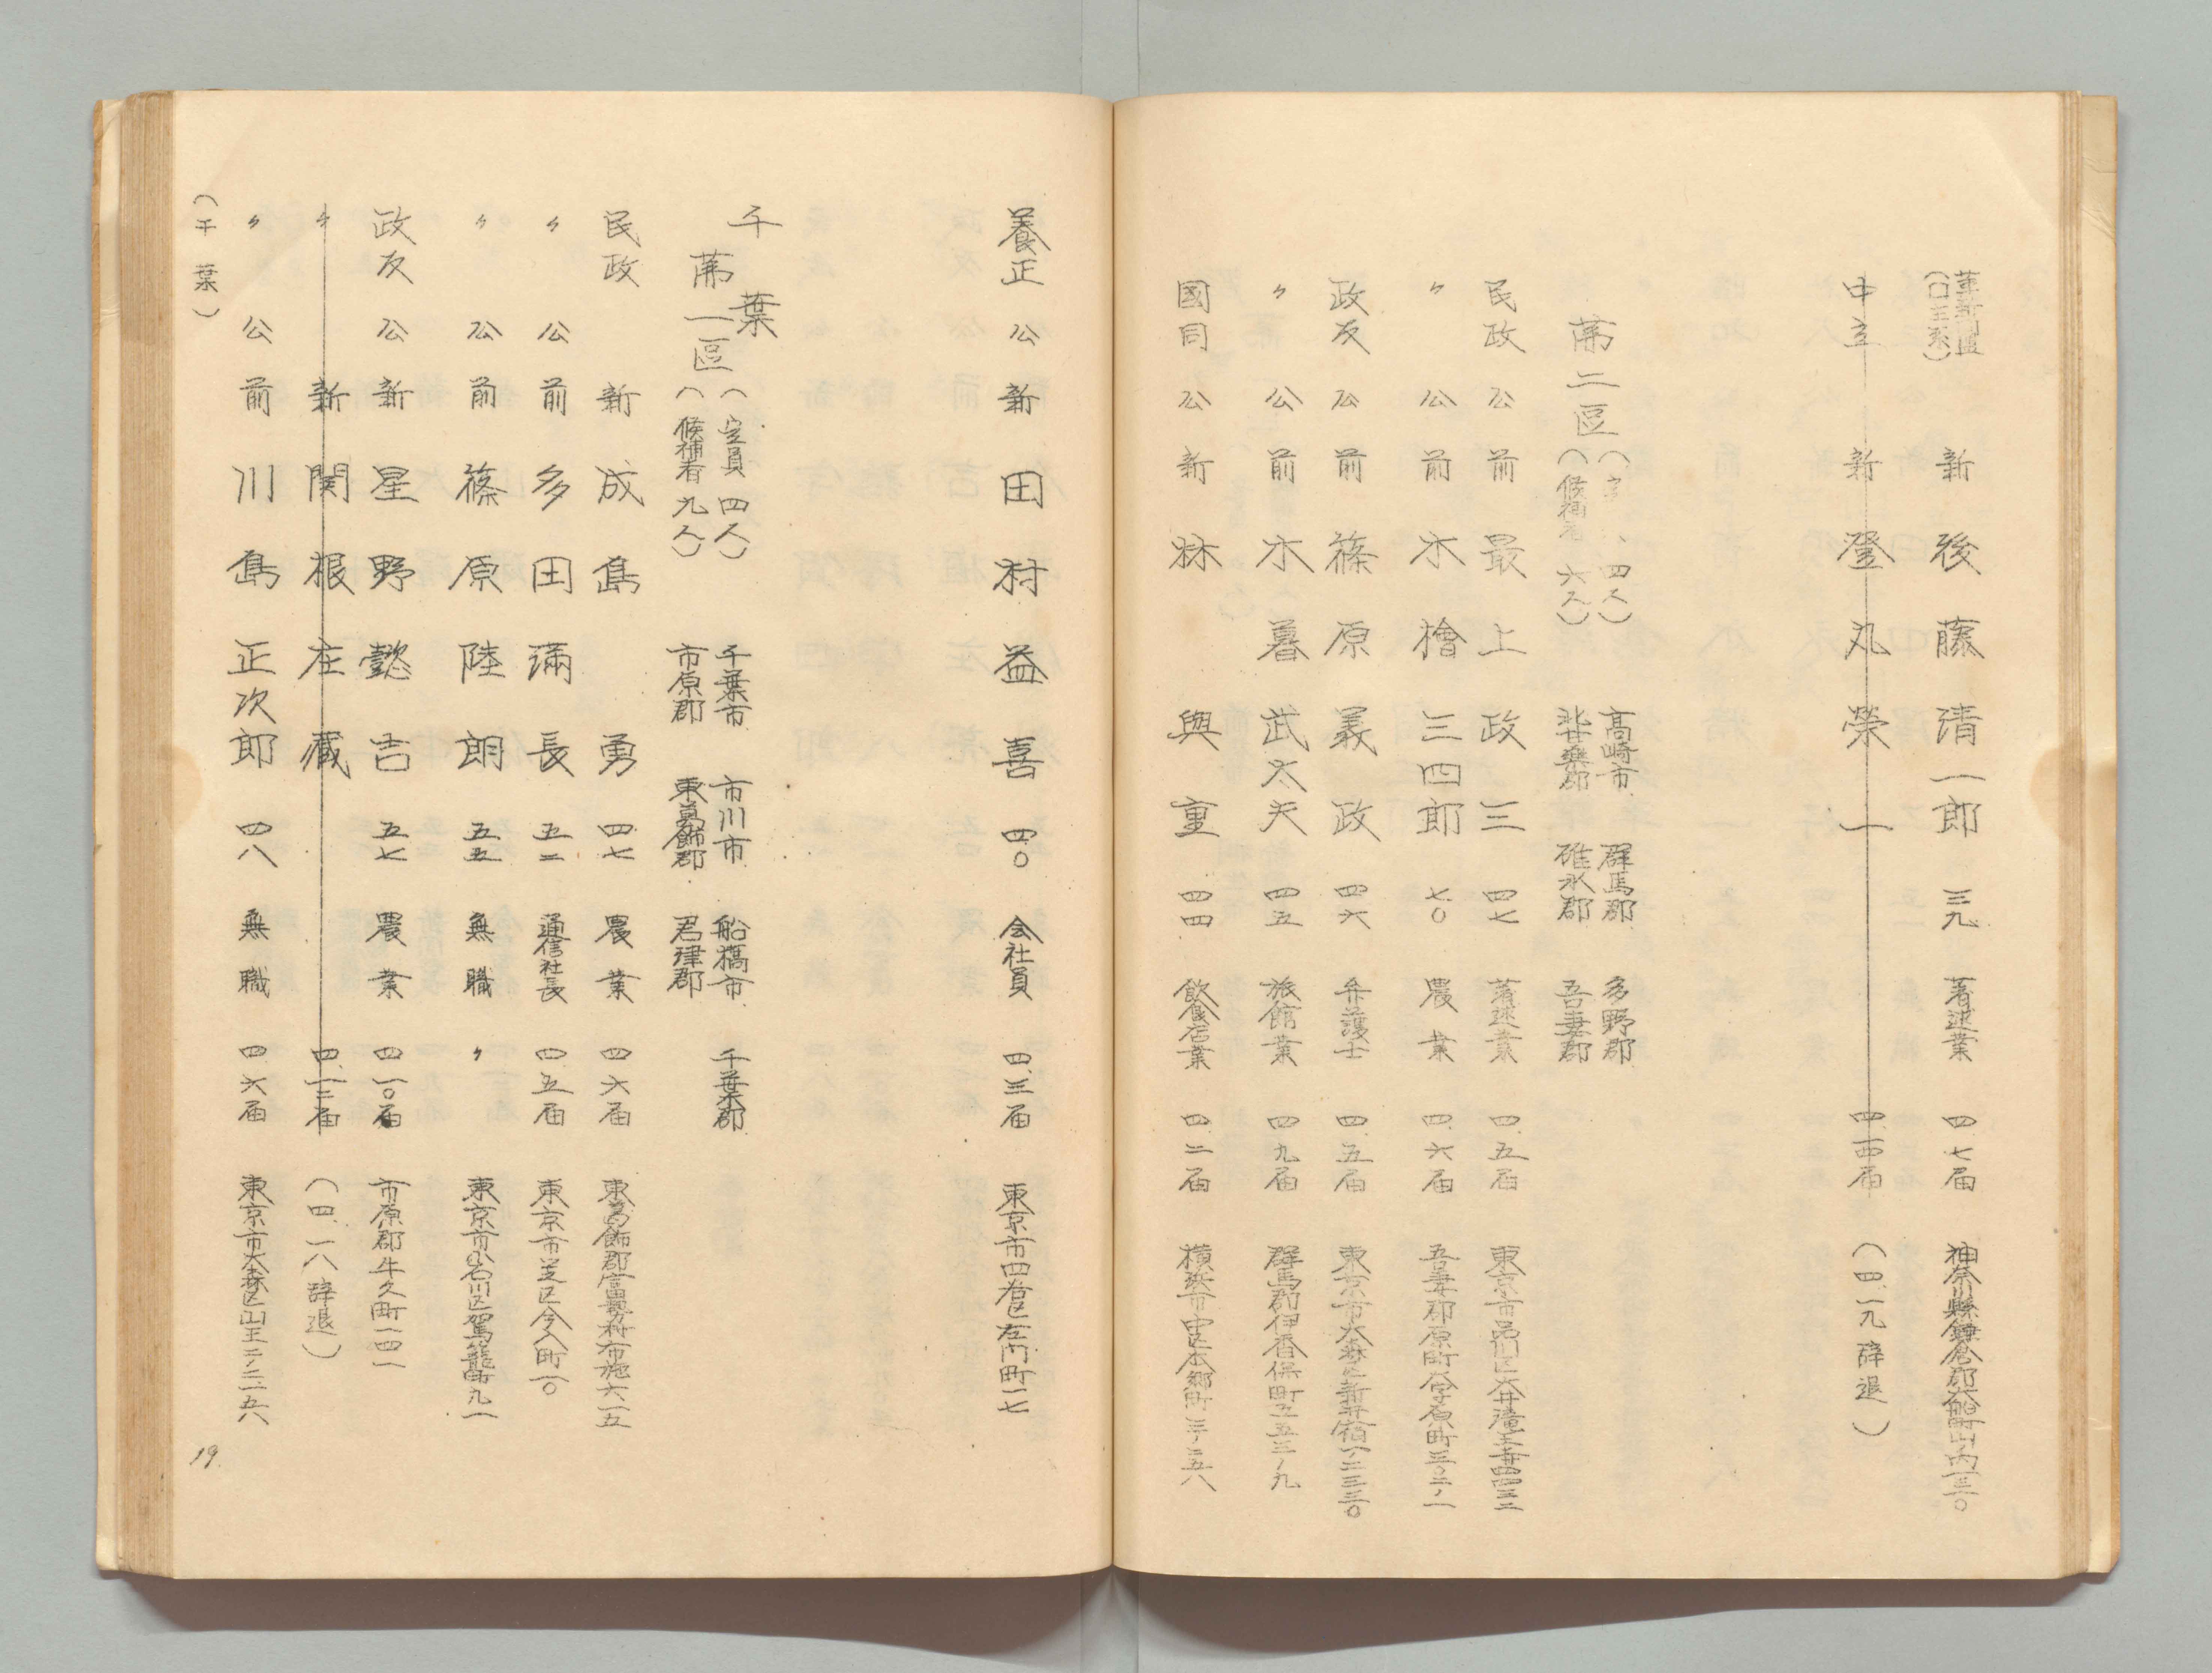 革新
(日主系) 新 後藤清一郎 三九 著述業 四.七届 神奈川縣鎌倉郡大船町山ノ内一三〇
中立 新 登丸榮一 四.一四届 (四.一九辞退)
第二區 (定員 四人) 高崎市 群馬郡 多野郡
(候補者 六人) 北甘樂郡 碓氷郡 吾妻郡
民政 公 前 最上政三 四七 著述業 四.五届 東京市品川区大井滝王子四四三二
〃 公 前 木檜三四郎 七〇 農業 四.六届 吾妻郡原町大字原町三〇二ノ一
政友 公 前 篠原義政 四六 弁護士 四.五届 東京市大森区新井宿一ノ二三三〇
〃 公 前 木暮武太夫 四五 旅館業 四.九届 群馬郡伊香保町五五三ノ九
國同 公 新 林與重 四四 飲食店業 四.二届 横浜市中区本郷町三ノ三五八
養正 公 新 田村益喜 四〇 会社員 四.三届 東京市四谷区左内町一七
千葉
第一區 (定員 四人) 千葉市 市川市 船橋市 千葉郡
(候補者 九人) 市原郡 東葛飾郡 君津郡
民政 新 成島勇 四七 農業 四.六届 東葛飾郡富勢村布施六一五
〃 公 前 多田満長 五二 通信社長 四.五届 東京市芝区今入町一〇
〃 公 前 篠原陸朗 五五 無職 〃 東京市小石川区駕籠町九一
政友 公 新 星野懿吉 五七 農業 四.一〇届 市原郡牛久町一四一
〃 新 関根庄藏 四.一三届 (四.一八辞退)
〃 公 前 川島正次郎 四八 無職 四.六届 東京市大森区山王二ノ二一五八
(千葉)
19